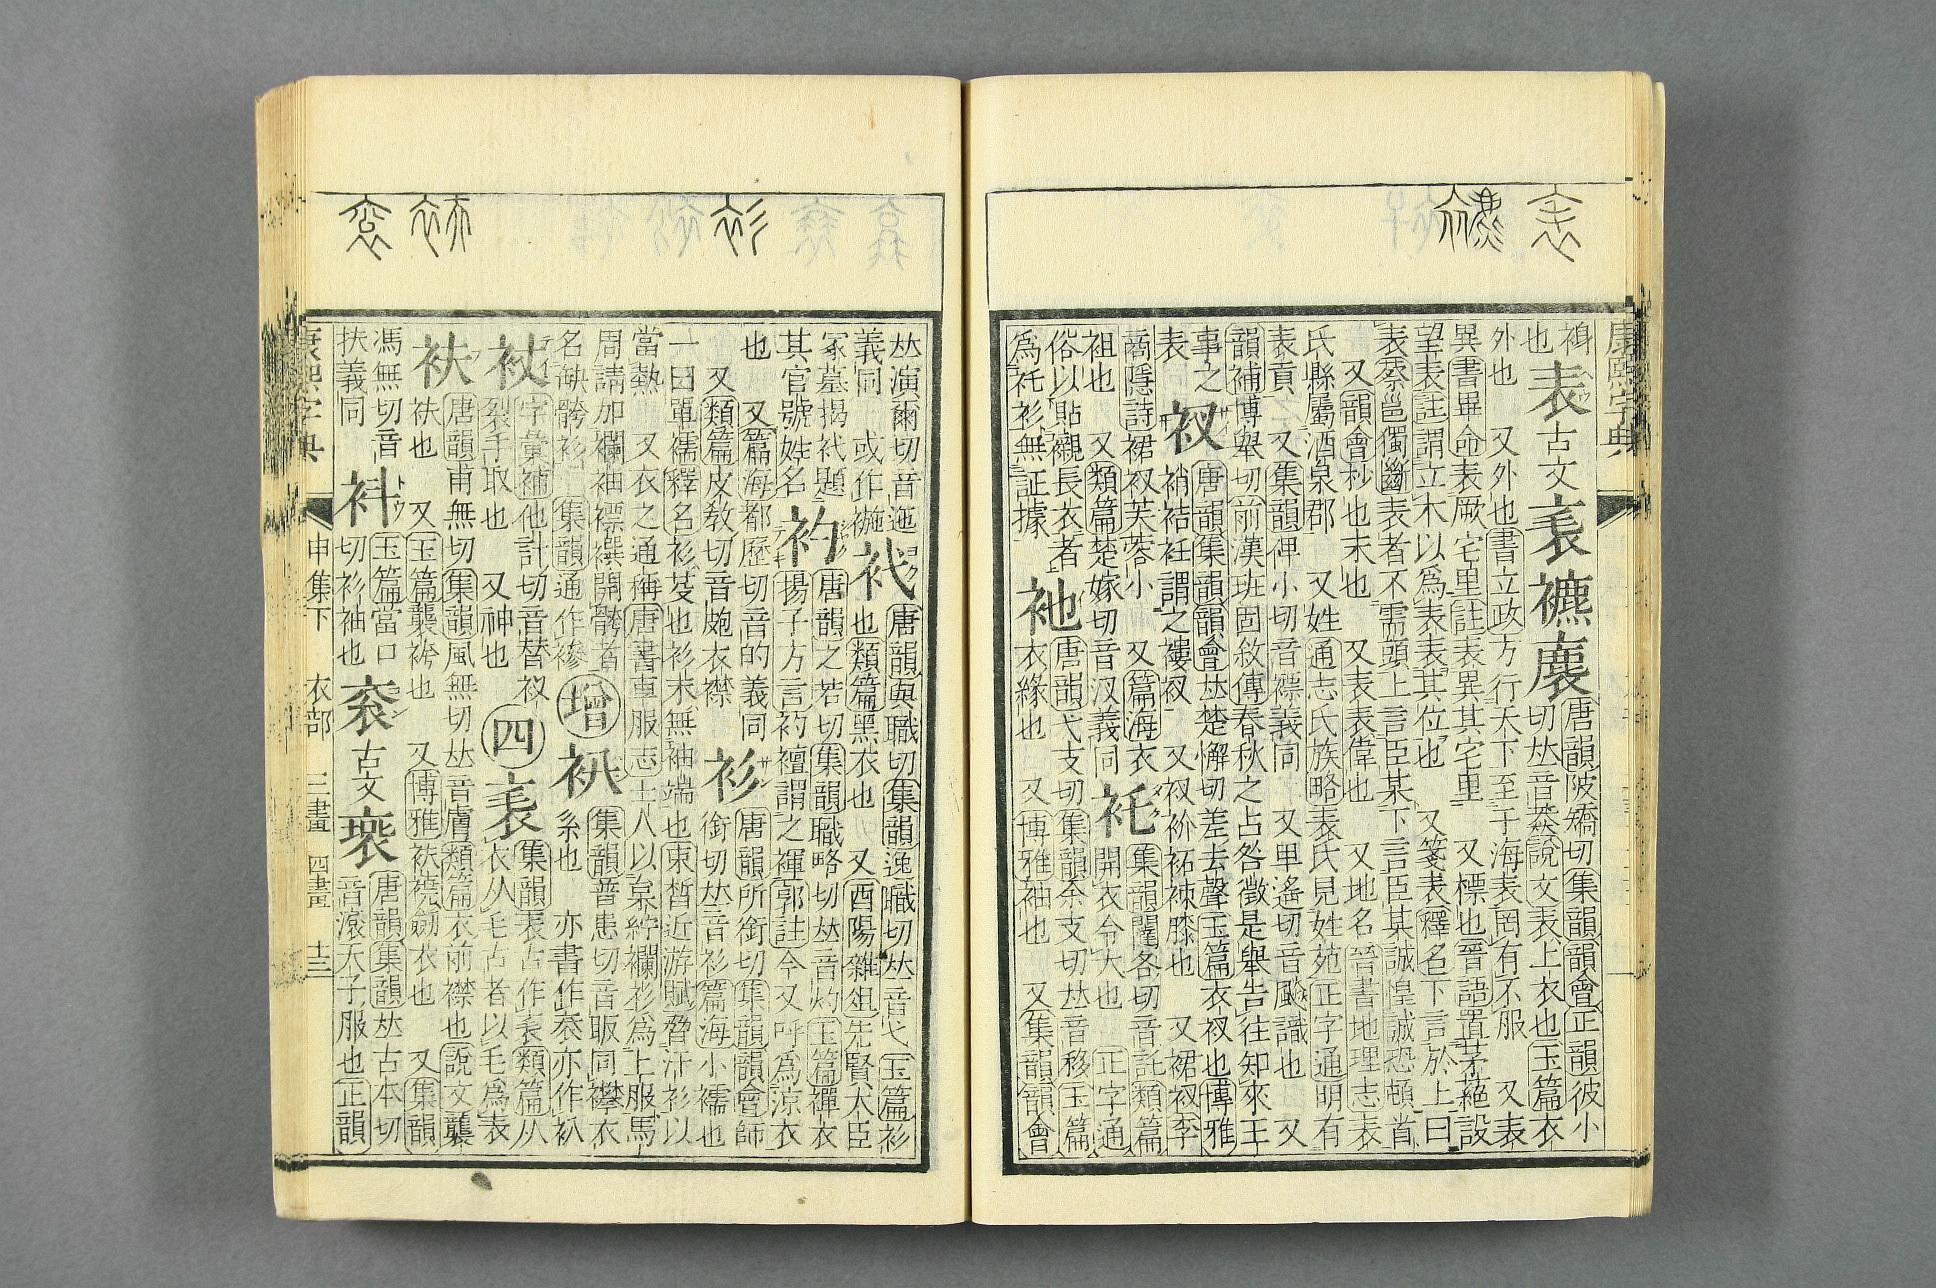 表古文
唐韻陂矯切集韻韻會正韻彼小
也
切𠀤音㟽說文表上衣也玉篇衣
外也 又外也書立政方行天下至于海表罔有不服 又表
異書畢命表厥宅里註表異其宅里 又標也晉語置茅蕝設
望表註謂立木以爲表表其位也 又箋表釋名下言於上曰
表蔡邕獨斷表者不需頭上言臣某下言臣某誠惶誠恐頓首
又韻會杪也末也 又表表偉也 又地名晉書地理志表
氏縣屬酒泉郡 又姓通志氏族略表氏見姓苑正字通明有
表貢 又集韻俾小切音褾義同 又卑遙切音飇識也 又
韻補博舉切前漢班固敘傳春秋之占咎徵是舉告往知來王
事之 衩 唐韻集韻韻會𠀤楚懈切差去聲玉篇衣衩也博雅
表 袺衽謂之褸衩 又衩衸袥䘺膝也 又裙衩李
商隱詩裙衩芙蓉小 又篇海衣 集韻闥各切音託類篇
袓也 又類篇楚嫁切音汊義同 開衣令大也 正字通
俗以貼襯長衣者 衪 唐韻弋支切集韻余支切𠀤音移玉篇
爲 衫無証據 衣緣也 又博雅袖也 又集韻韻會
𠀤演爾切音迤 唐韻與職切集韻逸職切𠀤音弋玉篇衫
義同 或作 也類篇黑衣也 又酉陽雜俎先賢大臣
冢墓揭杙題 唐韻之若切集韻職略切𠀤音灼玉篇襌衣
其官號姓名 揚子方言 襢謂之襌郭註今又呼爲涼衣
也 又篇海都歷切音的義同 衫 唐韻所銜切集韻韻會師
又類篇皮敎切音皰衣襟 銜切𠀤音衫篇海小襦也
一曰單襦釋名衫芟也衫末無袖端也束晳近游賦脅汗衫以
當熱 又衣之通稱唐書車服志士人以枲紵襴衫爲上服馬
周請加襴袖褾襈開骻者 增 集韻普患切音販同襻衣
名缺骻衫 集韻通作襂 系也 亦書作 亦作
字彙補他計切音替衩 四 集韻表古作 類篇从
裂手取也 又神也 衣从毛古者以毛爲表
衭 唐韻甫無切集韻風無切𠀤音膚類篇衣前襟也說文襲
衭也 又玉篇襲袴也 又博雅衭襓劒衣也 又集韻
馮無切音 玉篇當口 衮古文 唐韻集韻𠀤古本切
扶義同 切衫袖也 音滾天子服也正韻
康熙字典 申集下 衣部 三畫 四畫 十三
康熙字典